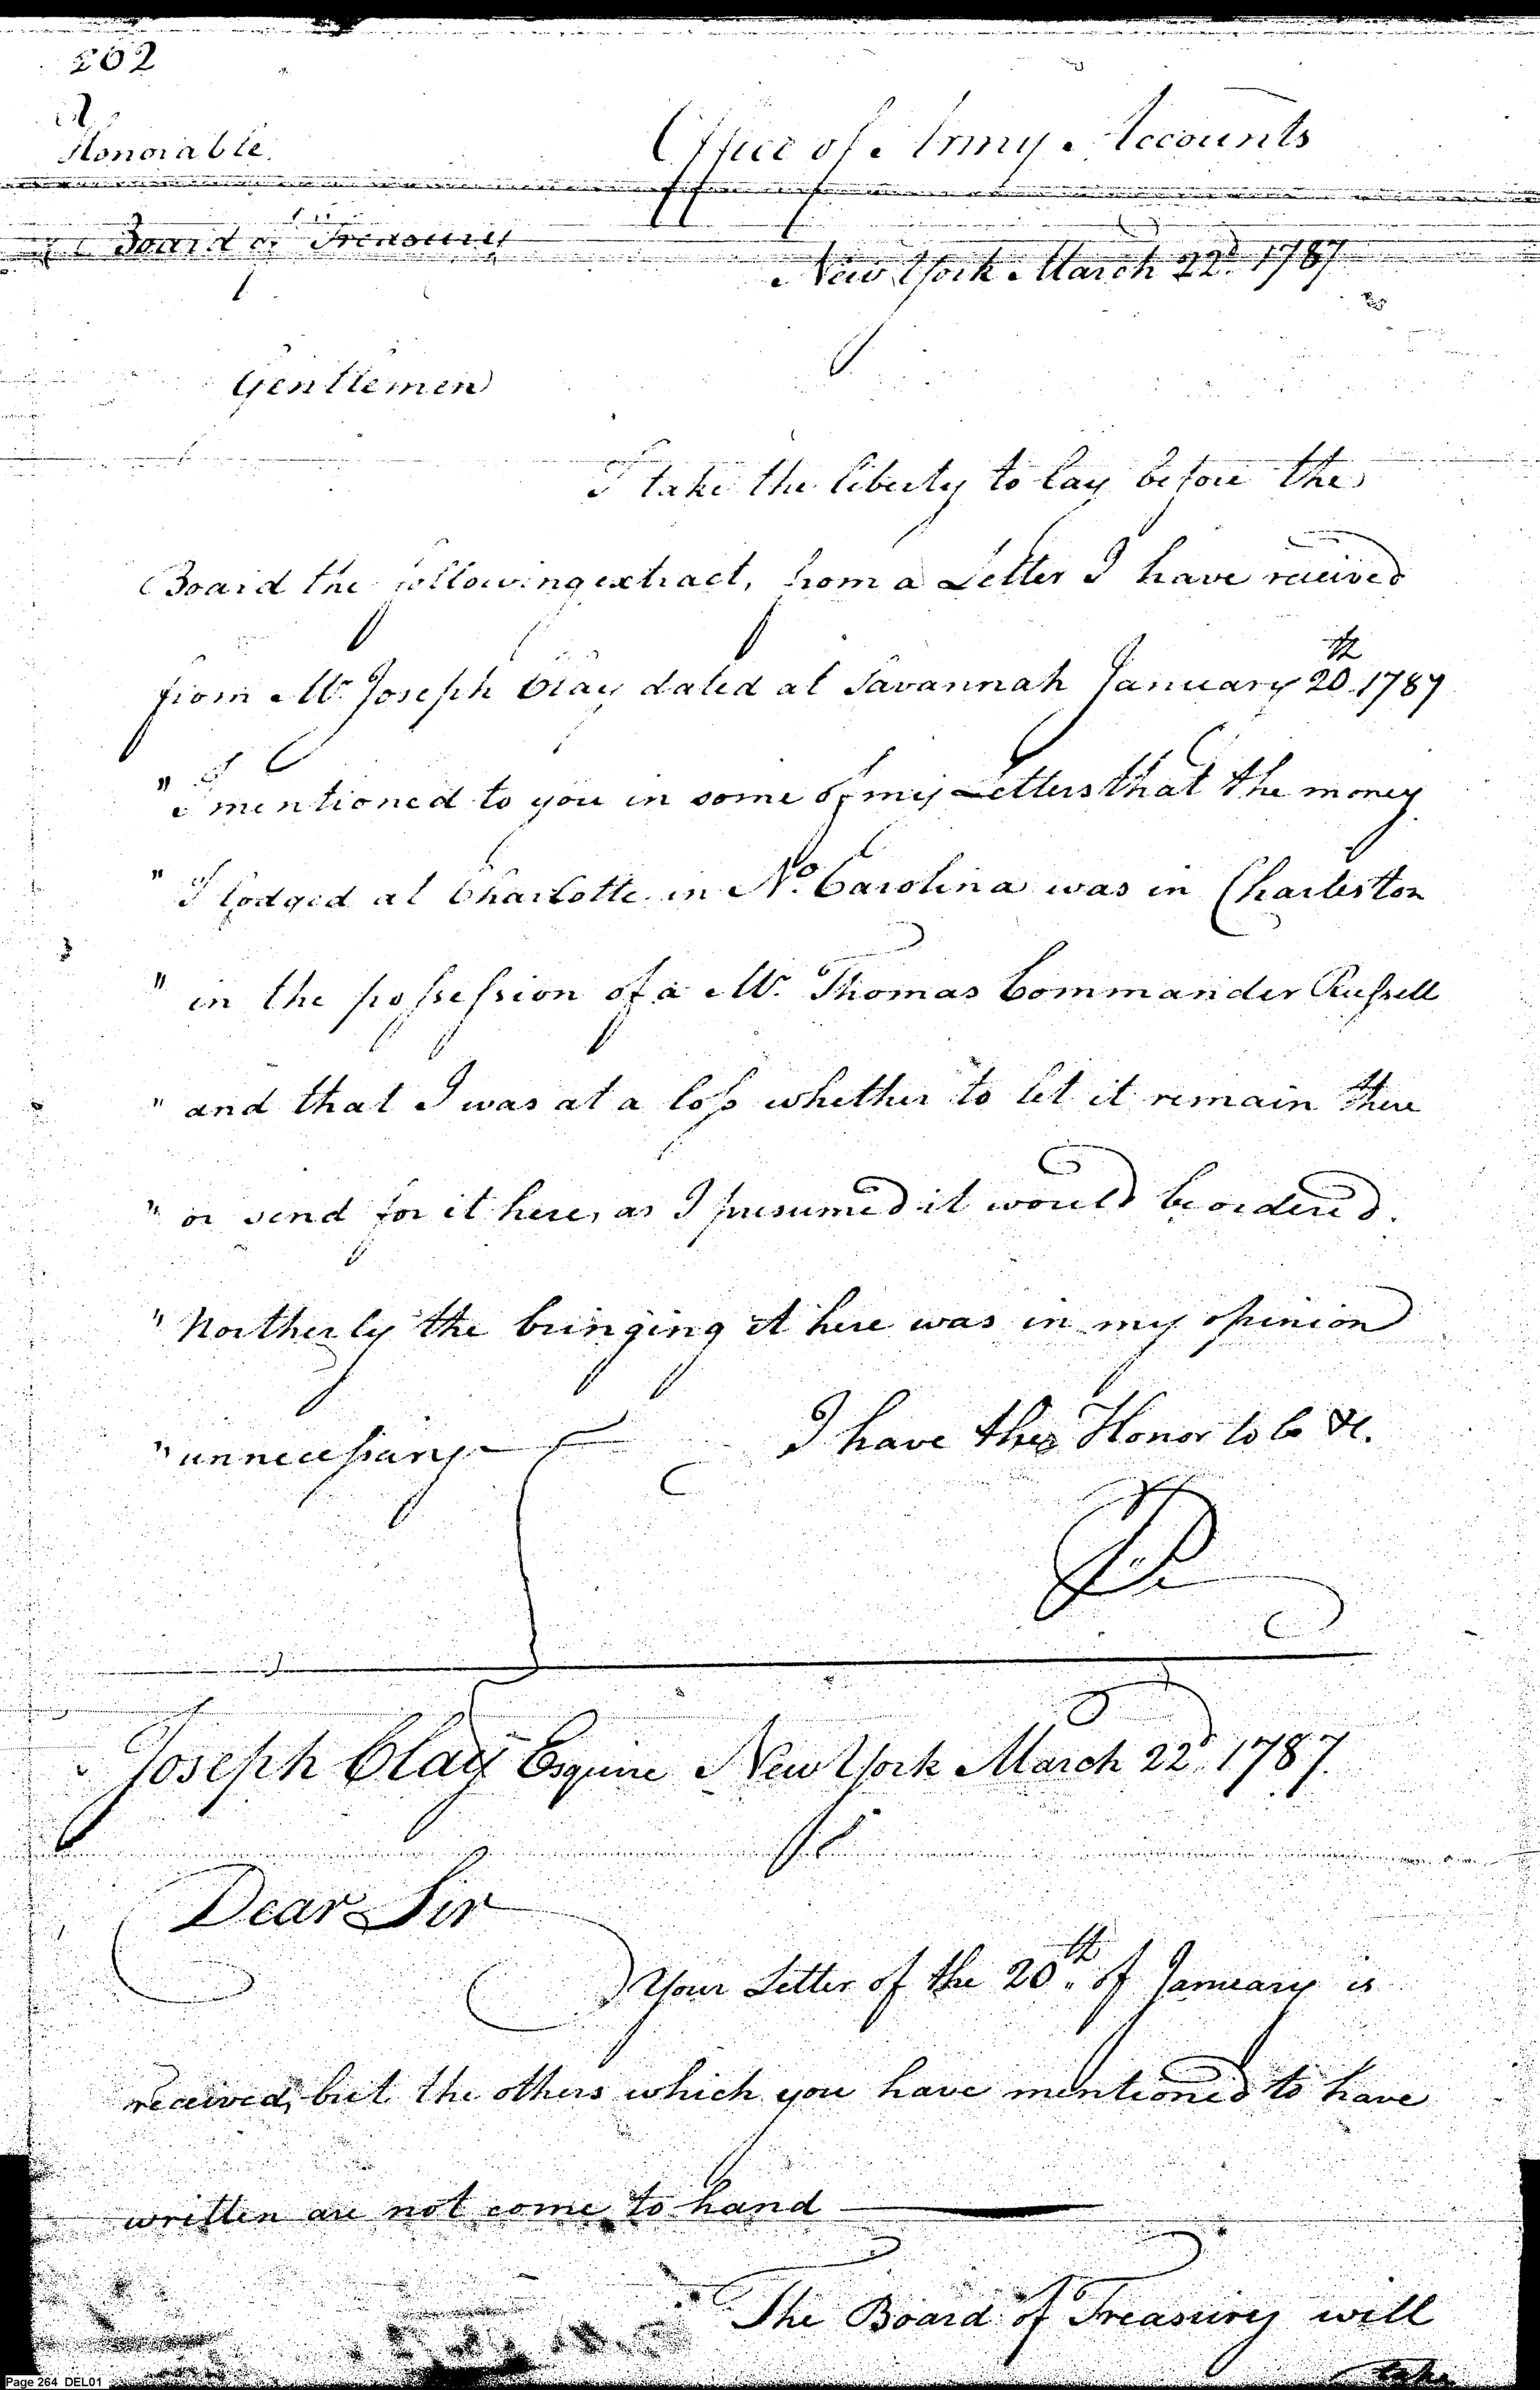 202
Honorable
Office of Army Accounts
Board of Treasury
New York March 22d. 1787
Gentlemen
I take the liberty to lay before the
Board the following extract, from a Letter I have received
from Mr. Joseph Clay dated at Savannah January 20th. 1787
" I mentioned to you in some of my Letters that the money
" I lodged at Charlotte in No. Carolina was in Charleston
" in the possession of a Mr. Thomas Commander Russell
" and that I was at a loss whether to let it remain there
" or send for it here, as I presumed it would be ordered.
" Northerly the bringing it here was in my opinion
" unnecessary
I have the Honor to be &c.
Joseph Clay Esquire New York March 22d. 1787.
Dear Sir
Your Letter of the 20th. of January is
received, but the others which you have mentioned to have
written are not come to hand
The Board of Treasury will
take
Page 264 DEL01